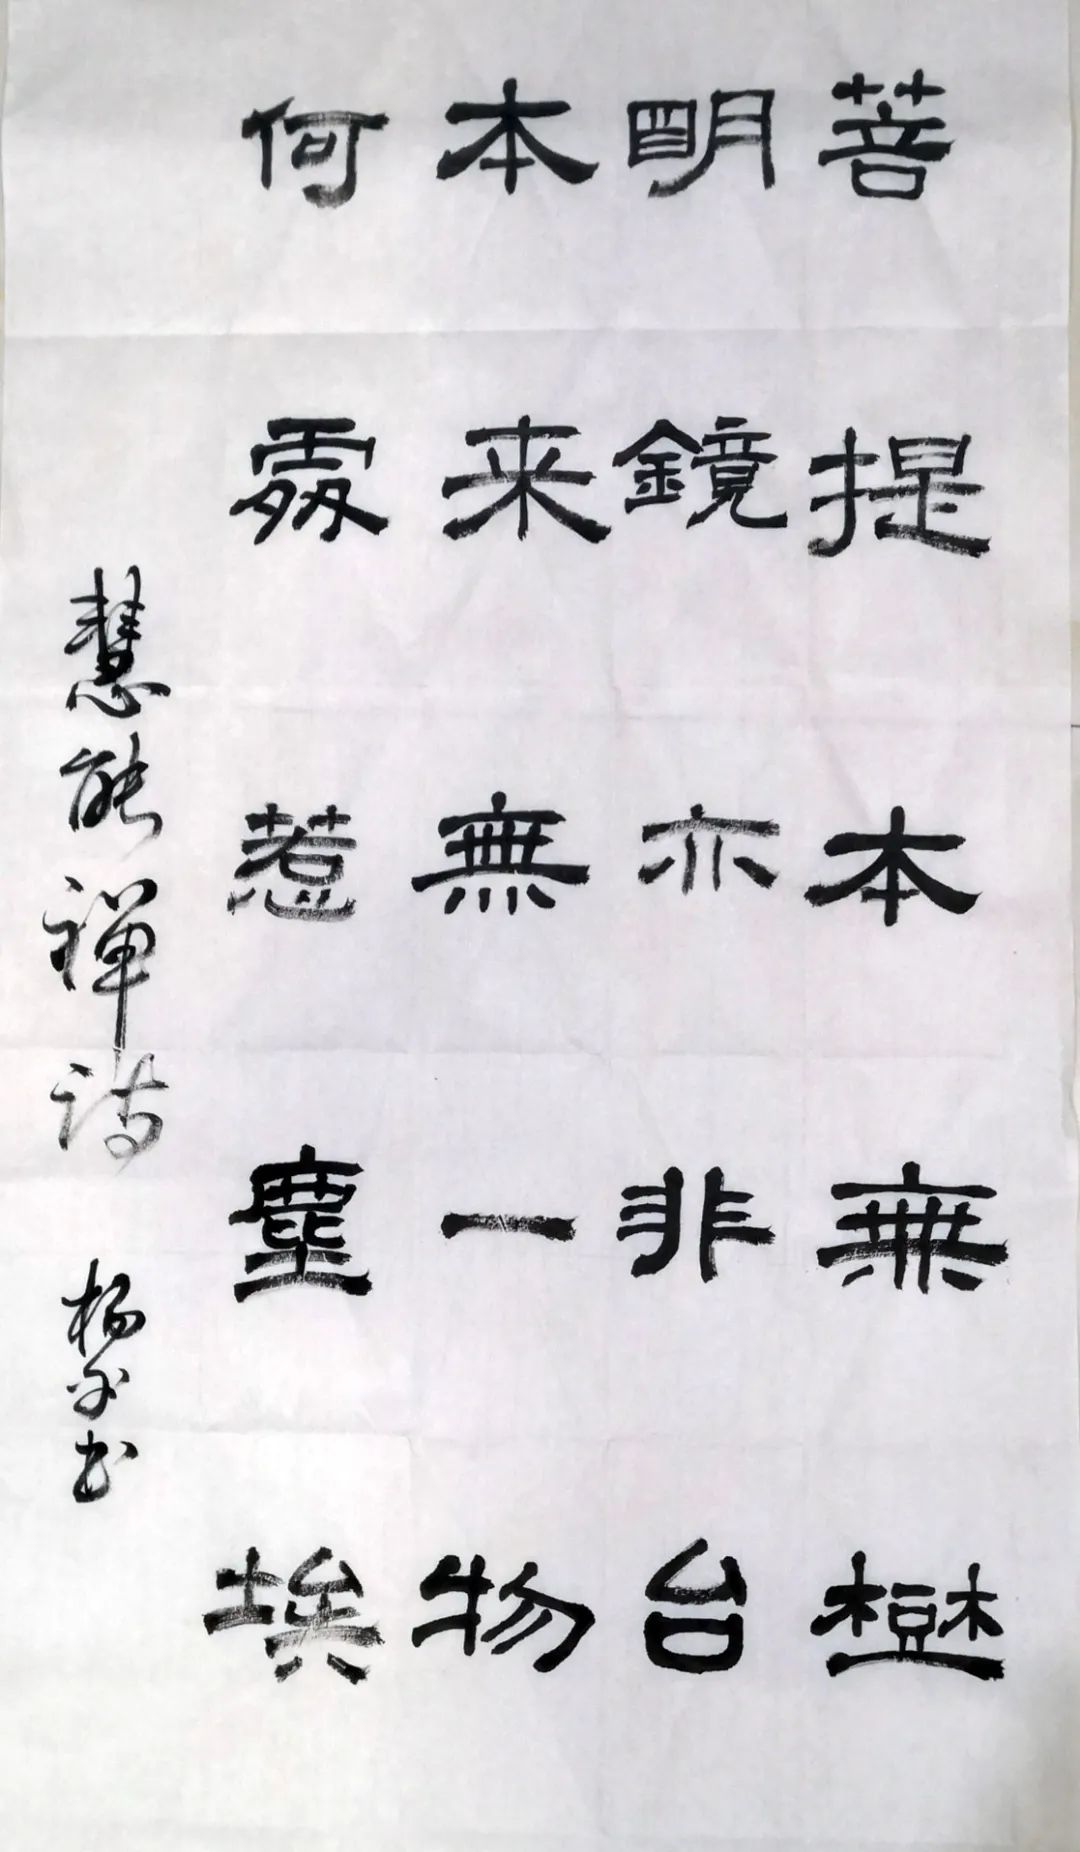 菩提本無樹
眀鏡亦非台
本来無一物
何處惹塵埃
慧能禅诗 杨 书